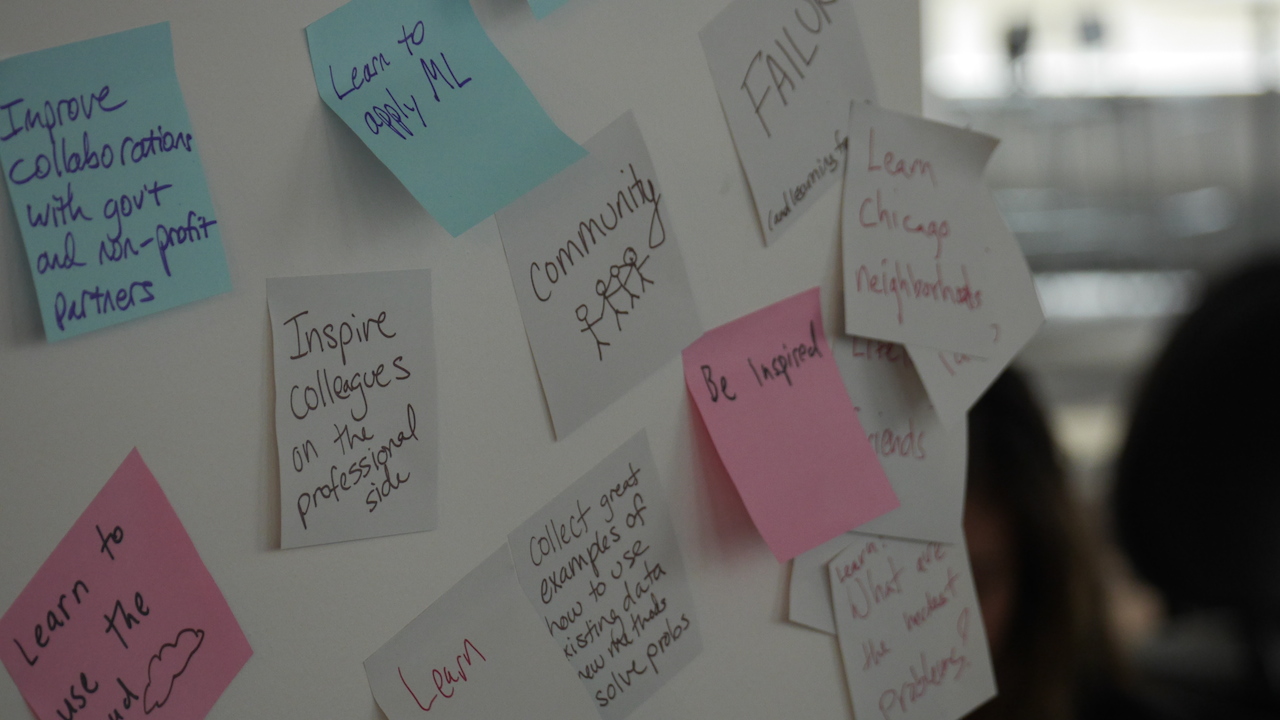 Improve
collaborations
with gov't
and non-profit
partners
Learn to
apply ML
Community
FAILUR
(and learning fr
Learn
Chicago
neighborhoods
Inspire
colleagues
on the
professional
side
Be Inspired
riends
Learn to
use the
ud
Learn
collect great
examples of
how to use
existing data
new methods
solve probs
Learn:
What are
the
problems?